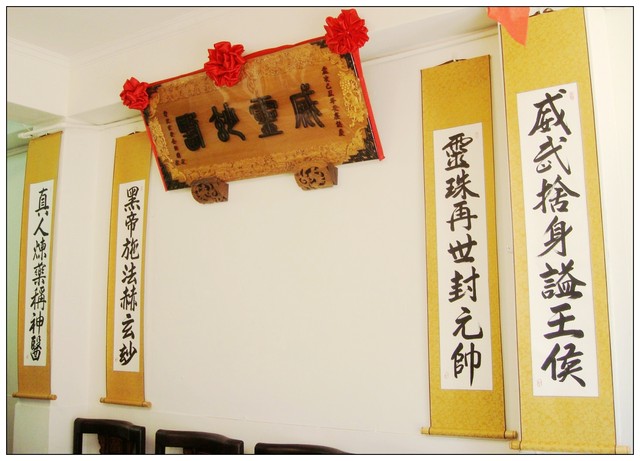 威靈
威武捨身諡王侯
靈珠再世封元帥
黑帝施法赫玄玅
真人煉藥稱神醫